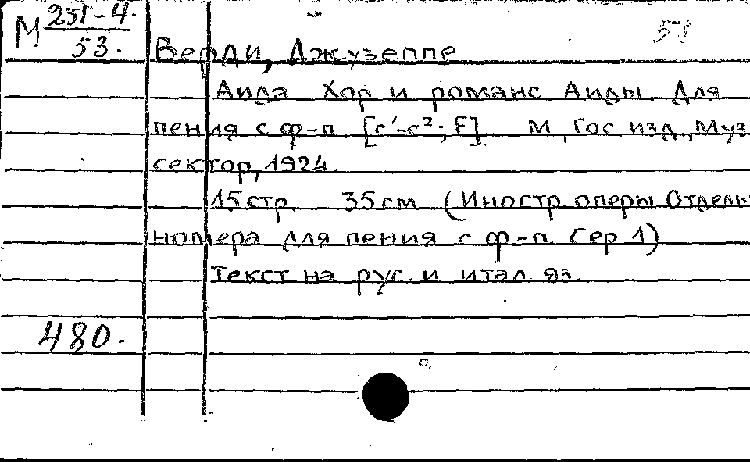 М 251-4. 51
53.
Верди, Джузеппе
Аида Хор и романс Аиды Для
пения с ф-п [c'-c²; F]. М, Гос изд, Муз
сектор, 1924.
15 стр 35 см (Иностр оперы Отдельн
номера для пения с ф-п Сер 1)
Текст на рус. и итал яз.
480.